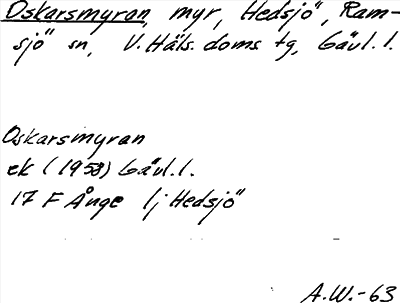 Oskarsmyran, myr, Hedsjö, Ram-
sjö sn, V. Häls. doms tg, Gävl. l.
Oskarsmyran
ek (1958) Gävl. l.
17 F Ånge lj Hedsjö
A.W.-63